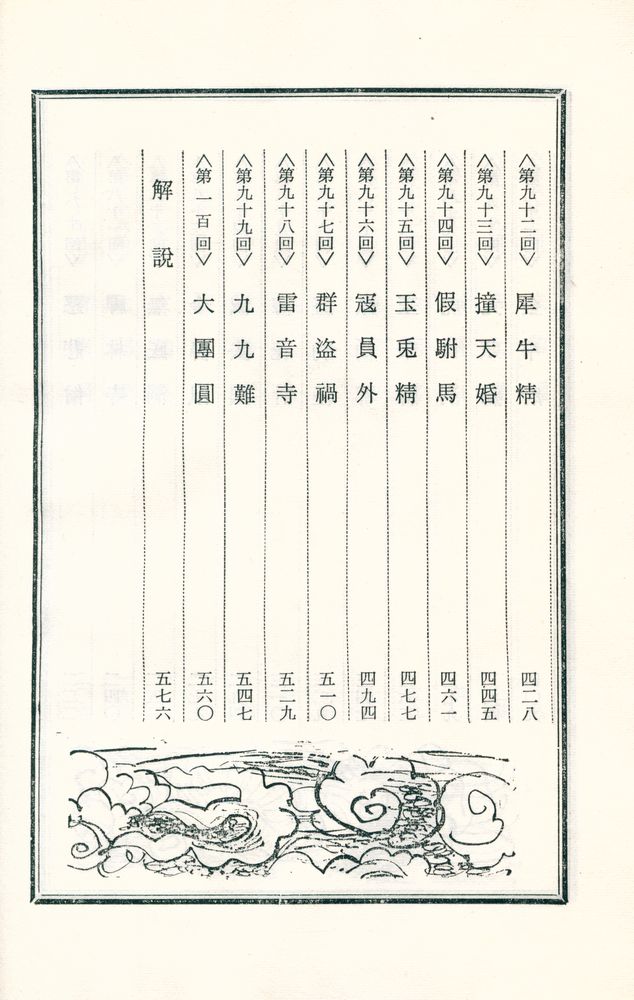 〈第九十二回〉 犀牛精 四二八
〈第九十三回〉 撞天婚 四四五
〈第九十四回〉 假駙馬 四六一
〈第九十五回〉 玉兎精 四七七
〈第九十六回〉 寇員外 四九四
〈第九十七回〉 群盜禍 五一〇
〈第九十八回〉 雷音寺 五二九
〈第九十九回〉 九九難 五四七
〈第一百回〉 大團圓 五六〇
解說 五七六